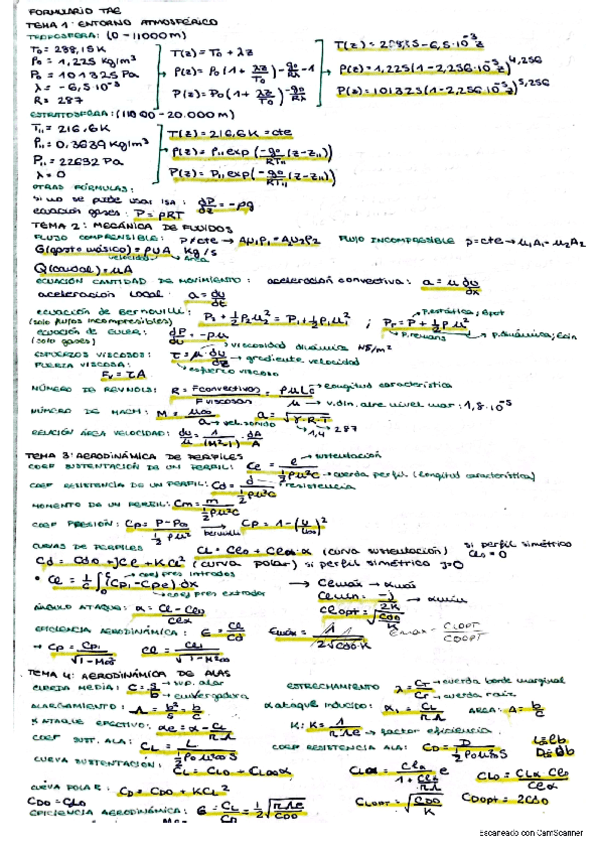 FORMULARIO TAE
TEMA 1: ENTORNO ATMOSFÉRICO
TROPOSFERA: (0-11000m)
T₀ = 288,15K
ρ₀ = 1,225 kg/m³
P₀ = 101325 Pa
λ = -6,5·10⁻³
R = 287
T(z) = T₀ + λz
ρ(z) = ρ₀(1 + λz/T₀)^(-g₀/Rλ - 1)
P(z) = P₀(1 + λz/T₀)^(-g₀/Rλ)
T(z) = 288,15 - 6,5·10⁻³z
ρ(z) = 1,225(1 - 2,256·10⁻⁵z)^4,256
P(z) = 101325(1 - 2,256·10⁻⁵z)^5,256
ESTRATOSFERA: (11000 - 20.000m)
T₁₁ = 216,6K
ρ₁₁ = 0,3639 kg/m³
P₁₁ = 22632 Pa
λ = 0
T(z) = 216,6K = cte
ρ(z) = ρ₁₁ exp(-g₀/RT₁₁ (z-z₁₁))
P(z) = P₁₁ exp(-g₀/RT₁₁ (z-z₁₁))
OTRAS FÓRMULAS:
si no se puede usar ISA: dP/dz = -ρg
ecuación gases: P = ρRT
TEMA 2: MECÁNICA DE FLUIDOS
FLUJO COMPRENSIBLE: ρ≠cte → A₁μ₁ρ₁ = A₂μ₂ρ₂ FLUJO INCOMPRESIBLE ρ=cte → μ₁A₁ = μ₂A₂
G(gasto másico) = ρμA kg/s
velocidad area
Q(caudal) = μA
ECUACIÓN CANTIDAD DE MOVIMIENTO: aceleración convectiva: a = μ du/dx
aceleración local: a = du/dt
ecuación de Bernouilli: P₂ + ½ρ₂μ₂² = P₁ + ½ρ₁μ₁² ; P_T = P + ½ρμ²
(solo flujos incompresibles)
P.estática; Epot
P.remans
P.dinámica; Ecin
ecuación de EULER: dP = -ρμ
(solo gases)
ESFUERZOS VISCOSOS: τ = μ·du/dz
viscosidad dinámica NS/m²
gradiente velocidad
FUERZA VISCOSA: esfuerzo viscoso
Fv = τA
NÚMERO DE REYNOLS: R = Fconvectivas/Fviscosas = ρμL/μ longitud característica
v.din. aire nivel mar: 1,8·10⁻⁵
NÚMERO DE MACH: M = μ∞/a a = √(γ·R·T)
vel.sonido 1,4 287
RELACIÓN ÁREA VELOCIDAD: du/μ = 1/(M²-1) · dA/A
TEMA 3: AERODINÁMICA DE PERFILES
COEF SUSTENTACIÓN DE UN PERFIL: Cl = l/(½ρμ²c) → sustentación
cuerda perfil (longitud característica)
COEF RESISTENCIA DE UN PERFIL: Cd = d/(½ρμ²c) → resistencia
MOMENTO DE UN PERFIL: Cm = m/(½ρμ²c)
COEF PRESIÓN: Cp = (P-P∞)/(½ρμ²) → Bernuilli Cp = 1-(μ/μ∞)²
CURVAS DE PERFILES CL = Cl₀ + Clα·α (curva sustentación) si perfil simétrico Cl₀ = 0
Cd = Cd₀ + JCl + KCl² (curva polar) si perfil simétrico J=0
• Cl = 1/c ∫₀ᶜ (Cpi - Cpe)·dx
coef pres intrados
coef pres extrados
→ Clmax → αmax
Clmin = -J → αmin
Clopt = √(2K/Cd₀)
ÁNGULO ATAQUE: α = (Cl - Cl₀)/Clα
EFICIENCIA AERODINÁMICA: E = Cl/Cd Emax = 1/(2√(Cd₀·K)) Emax = CLOPT/CDOPT
→ Cp = Cpi/√(1-M∞²) Cl = Cli/√(1-M²∞)
TEMA 4: AERODINÁMICA DE ALAS
CUERDA MEDIA: C = S/b → sup. alar
envergadura
ESTRECHAMIENTO λ = Ct/Cr → cuerda borde marginal
cuerda raíz
ALARGAMIENTO: Λ = b²/S = b/c α ataque inducido: αi = CL/πΛ AREA: A = b/c
∢ ATAQUE EFECTIVO: αe = α - CL/πΛ K: K = 1/πΛe → factor eficiencia
COEF SUST. ALA: CL = L/(½ρ∞μ²∞S) COEF RESISTENCIA ALA: CD = D/(½ρ∞μ²∞S)
L=lb
D=db
CUEVA SUSTENTACIÓN: CL = CL₀ + CLαα CLα = Clα/(1 + Clα/πΛ) e CL₀ = CLα Cl₀/Clα
CUEVA POLAR: CD = CD₀ + KCL²
CD₀ = Cd₀
CLOPT = √(CD₀/K) CDOPT = 2CD₀
EFICIENCIA AERODINÁMICA: E = CL/CD = ½√(πΛe/CD₀)
Escaneado con CamScanner